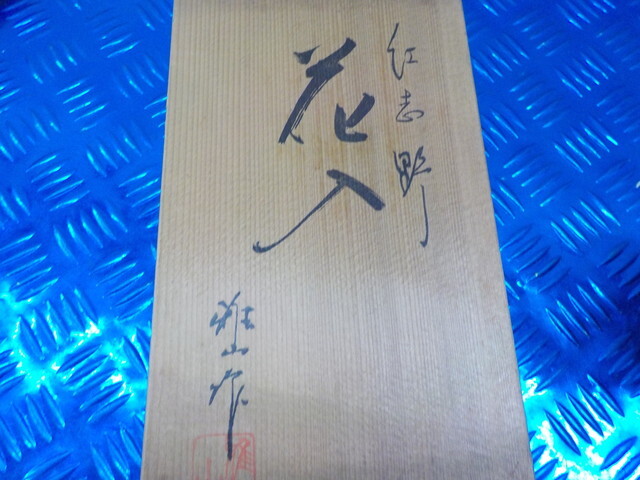 紅志野
花入
雅山作